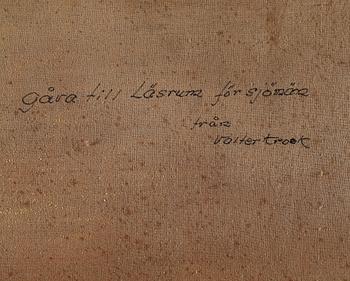 gåva till Läsrum för sjömän
från
Valter Krook